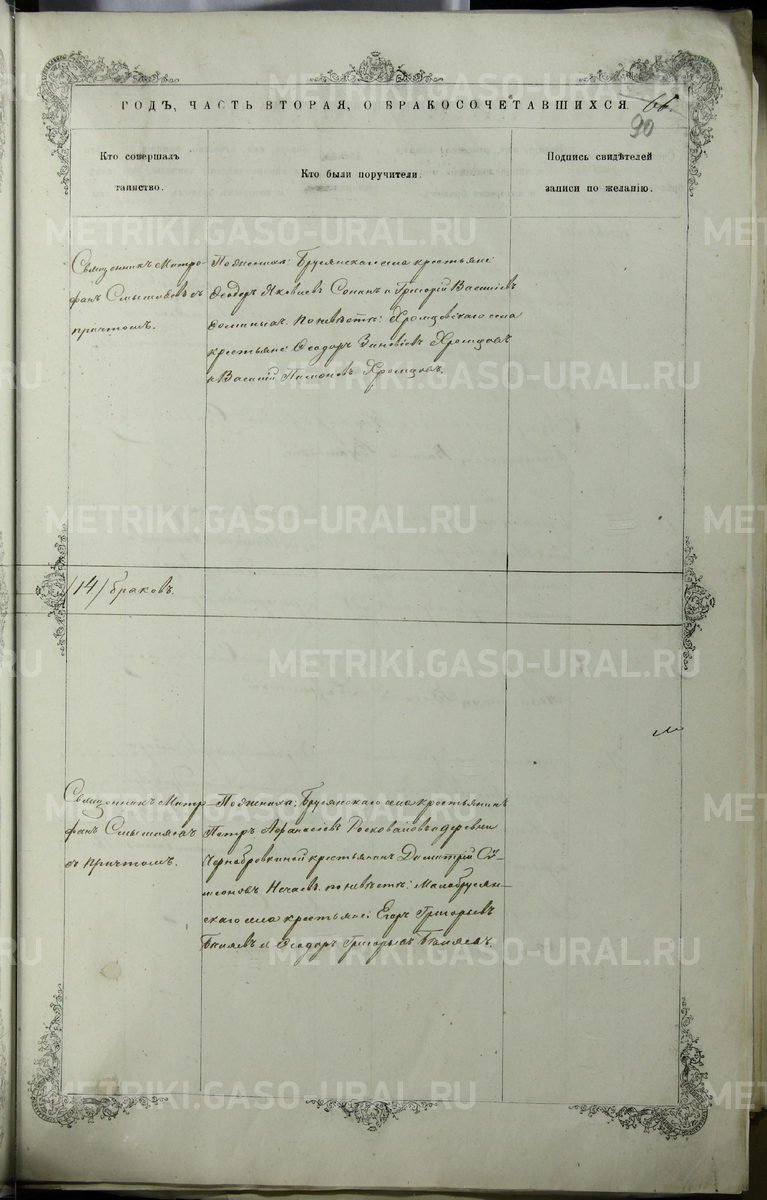 ГОДЪ, ЧАСТЬ ВТОРАЯ, О БРАКОСОЧЕТАВШИХСЯ
66.
90
Кто совершалъ
таинство.
Кто были поручители.
Подпись свидѣтелей
записи по желанію.
Священникъ Митро-
фанъ съ
причтомъ.
По женихѣ: Бруснянскаго села крестьяне
Ѳеодоръ Яковлевъ и Григорій Василіевъ
по невѣстѣ: Хромцовскаго села
крестьяне Ѳеодоръ Зиновіевъ Хромцовъ
и Василій Хромцовъ.
/14/ браковъ.
Священникъ Митро-
фанъ
съ причтомъ.
По женихѣ: села крестьянинъ
Петръ Афанасіевъ деревни
Чернобровкиной крестьянинъ Димитрій Си-
меоновъ Нечаевъ. по невѣстѣ: Малобрусян-
скаго села крестьяне: Егоръ Григорьевъ
и Ѳеодоръ Григорьевъ
METRIKI.GASO-URAL.RU